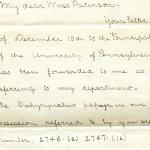 My dear Miss Paterson.
Your letter
of December 10th to the Principal
of the University of Pennsylvania
has been forwarded to me as
referring to my department.
The Oxyrhynchus papyri in our
possession referred to by you are
number, 2746-(2) 2747-(16)